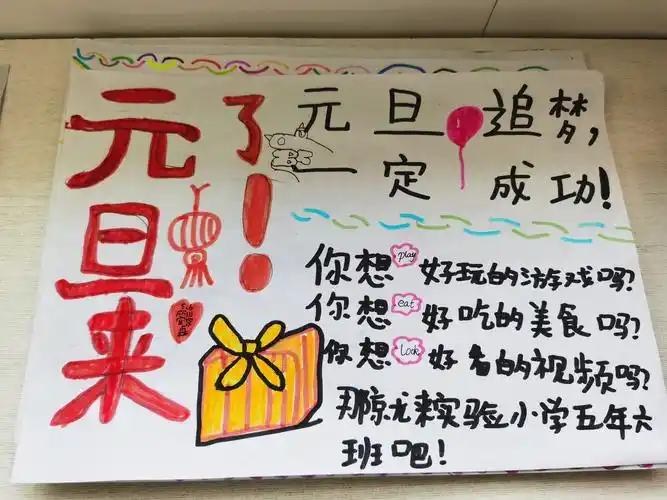 元旦来了！
元旦追梦，
一定成功！
你想play好玩的游戏吗？
你想eat好吃的美食吗？
你想look好看的视频吗？
那就来实验小学五年六
班吧！